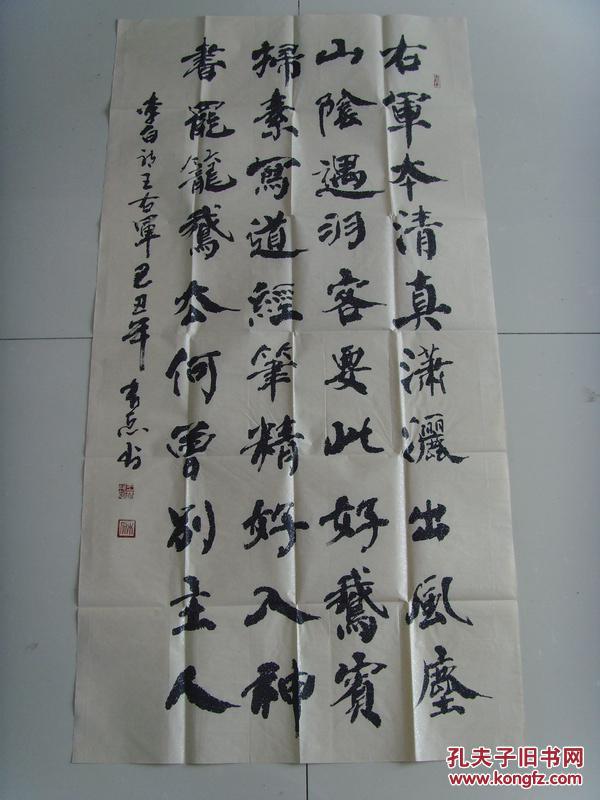 右軍本清真瀟灑出風塵
山陰遇羽客要此好鵝賓
掃素寫道經筆精妙入神
書罷籠鵝去何曾别主人
李白詩王右軍己丑年書
孔夫子旧书网
www.kongfz.com